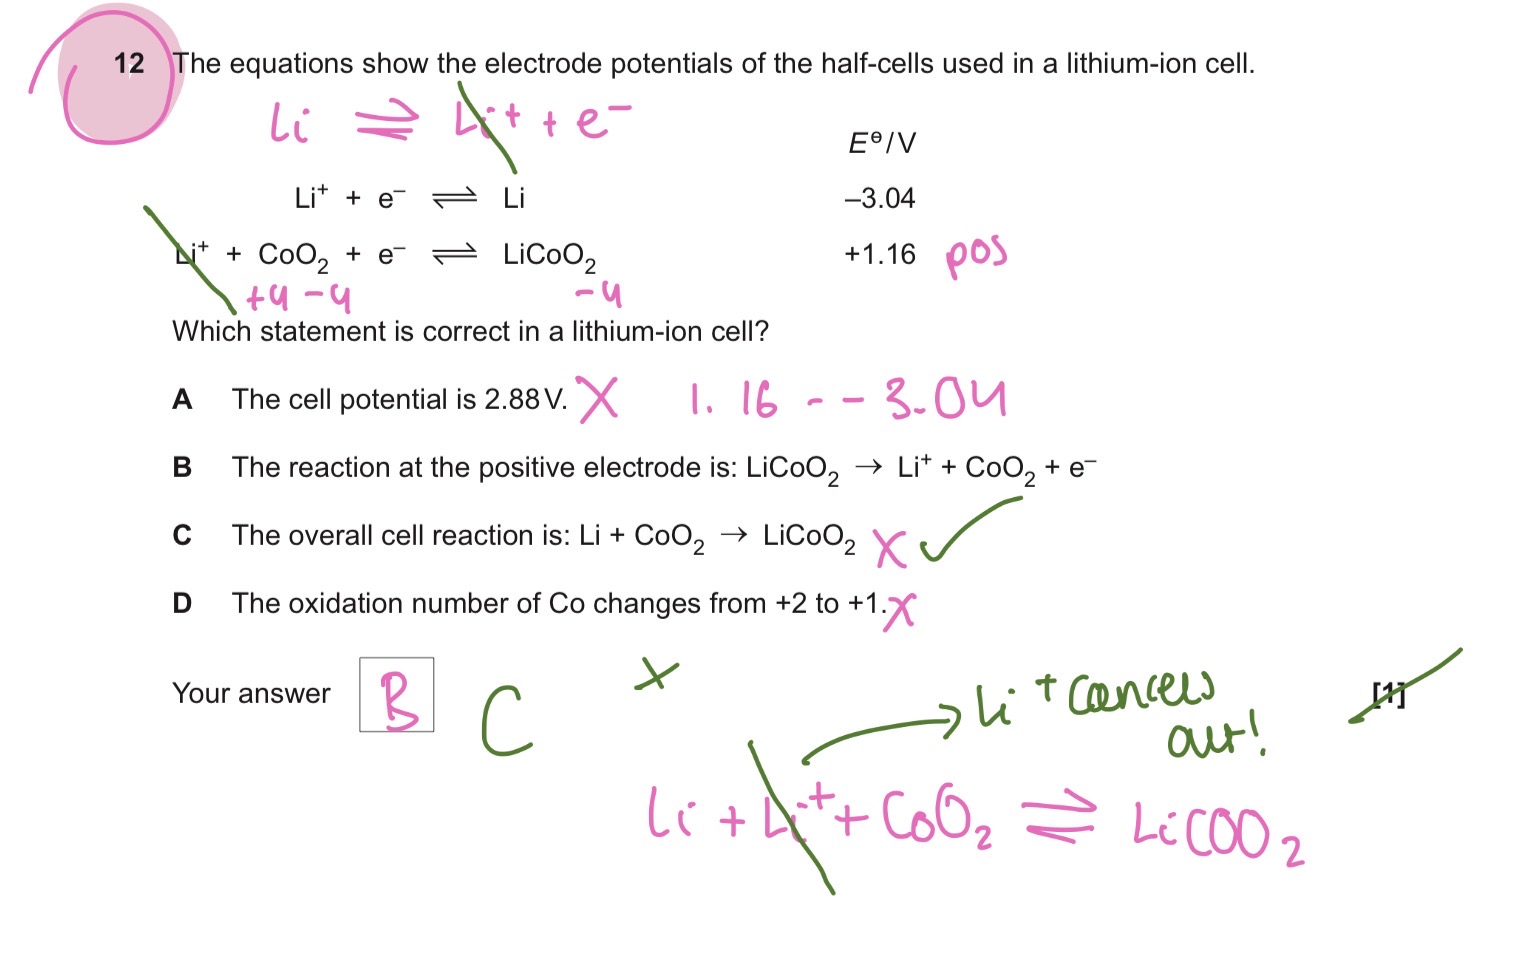 12 The equations show the electrode potentials of the half-cells used in a lithium-ion cell.
Li ⇌ Li⁺ + e⁻
E⦵/V
Li⁺ + e⁻ ⇌ Li –3.04
Li⁺ + CoO₂ + e⁻ ⇌ LiCoO₂ +1.16 pos
+4 -4 -4
Which statement is correct in a lithium-ion cell?
A The cell potential is 2.88 V. X 1.16 - - 3.04
B The reaction at the positive electrode is: LiCoO₂ → Li⁺ + CoO₂ + e⁻
C The overall cell reaction is: Li + CoO₂ → LiCoO₂ X ✓
D The oxidation number of Co changes from +2 to +1. X
Your answer B C x [1]
→ Li⁺ cancels
out!
Li + Li⁺ + CoO₂ ⇌ LiCOO₂